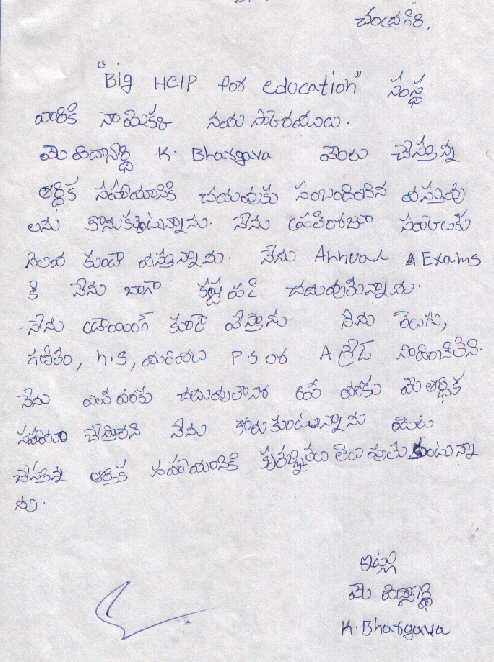 చంద్రగిరి.
"Big HElp for education" సంస్థ
వారికి నా యొక్క నమస్కారములు.
మీ విద్యార్థి K. Bhargava మీరు చేస్తున్న
ఆర్థిక సహాయానికి చదువుకు సంబంధించిన వస్తువు
లను కొనుకుంటున్నాను. నేను ప్రతిరోజూ
కుండా వస్తున్నాను. నేను Annual Exams
కి నేను బాగా కష్టపడి చదువుతున్నాను.
నేను డ్రాయింగ్ కూడా వేస్తాను నేను తెలుగు,
గణితం, N.S, P.S లో A గ్రేడ్
నేను చదువుతానో మీ ఆర్థిక
సహాయం నేను కోరుకుంటున్నాను మీరు
చేస్తున్న ఆర్థిక సహాయానికి కృతజ్ఞతలు తెలుపుకుంటున్నా
ను.
ఇట్లు
మీ విద్యార్థి
K. Bhargava